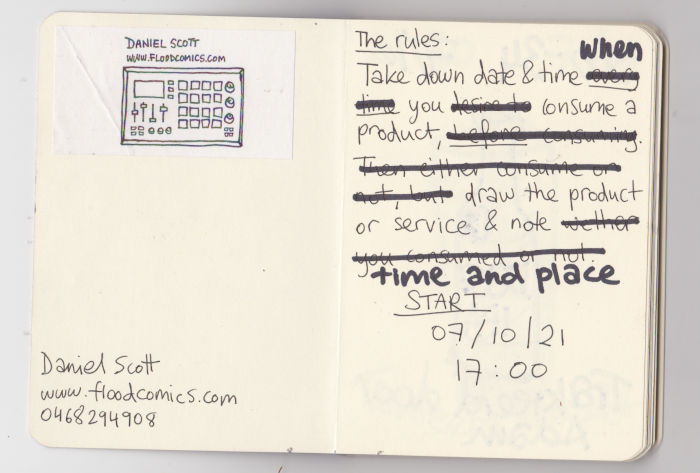 DANIEL SCOTT
WWW.FLOODCOMICS.COM
Daniel Scott
www.floodcomics.com
0468294908
The rules:
when
Take down date & time every
time you desire to consume a
product, before consuming.
Then either consume or
not, but draw the product
or service & note wether
you consumed or not.
time and place
START
07/10/21
17:00